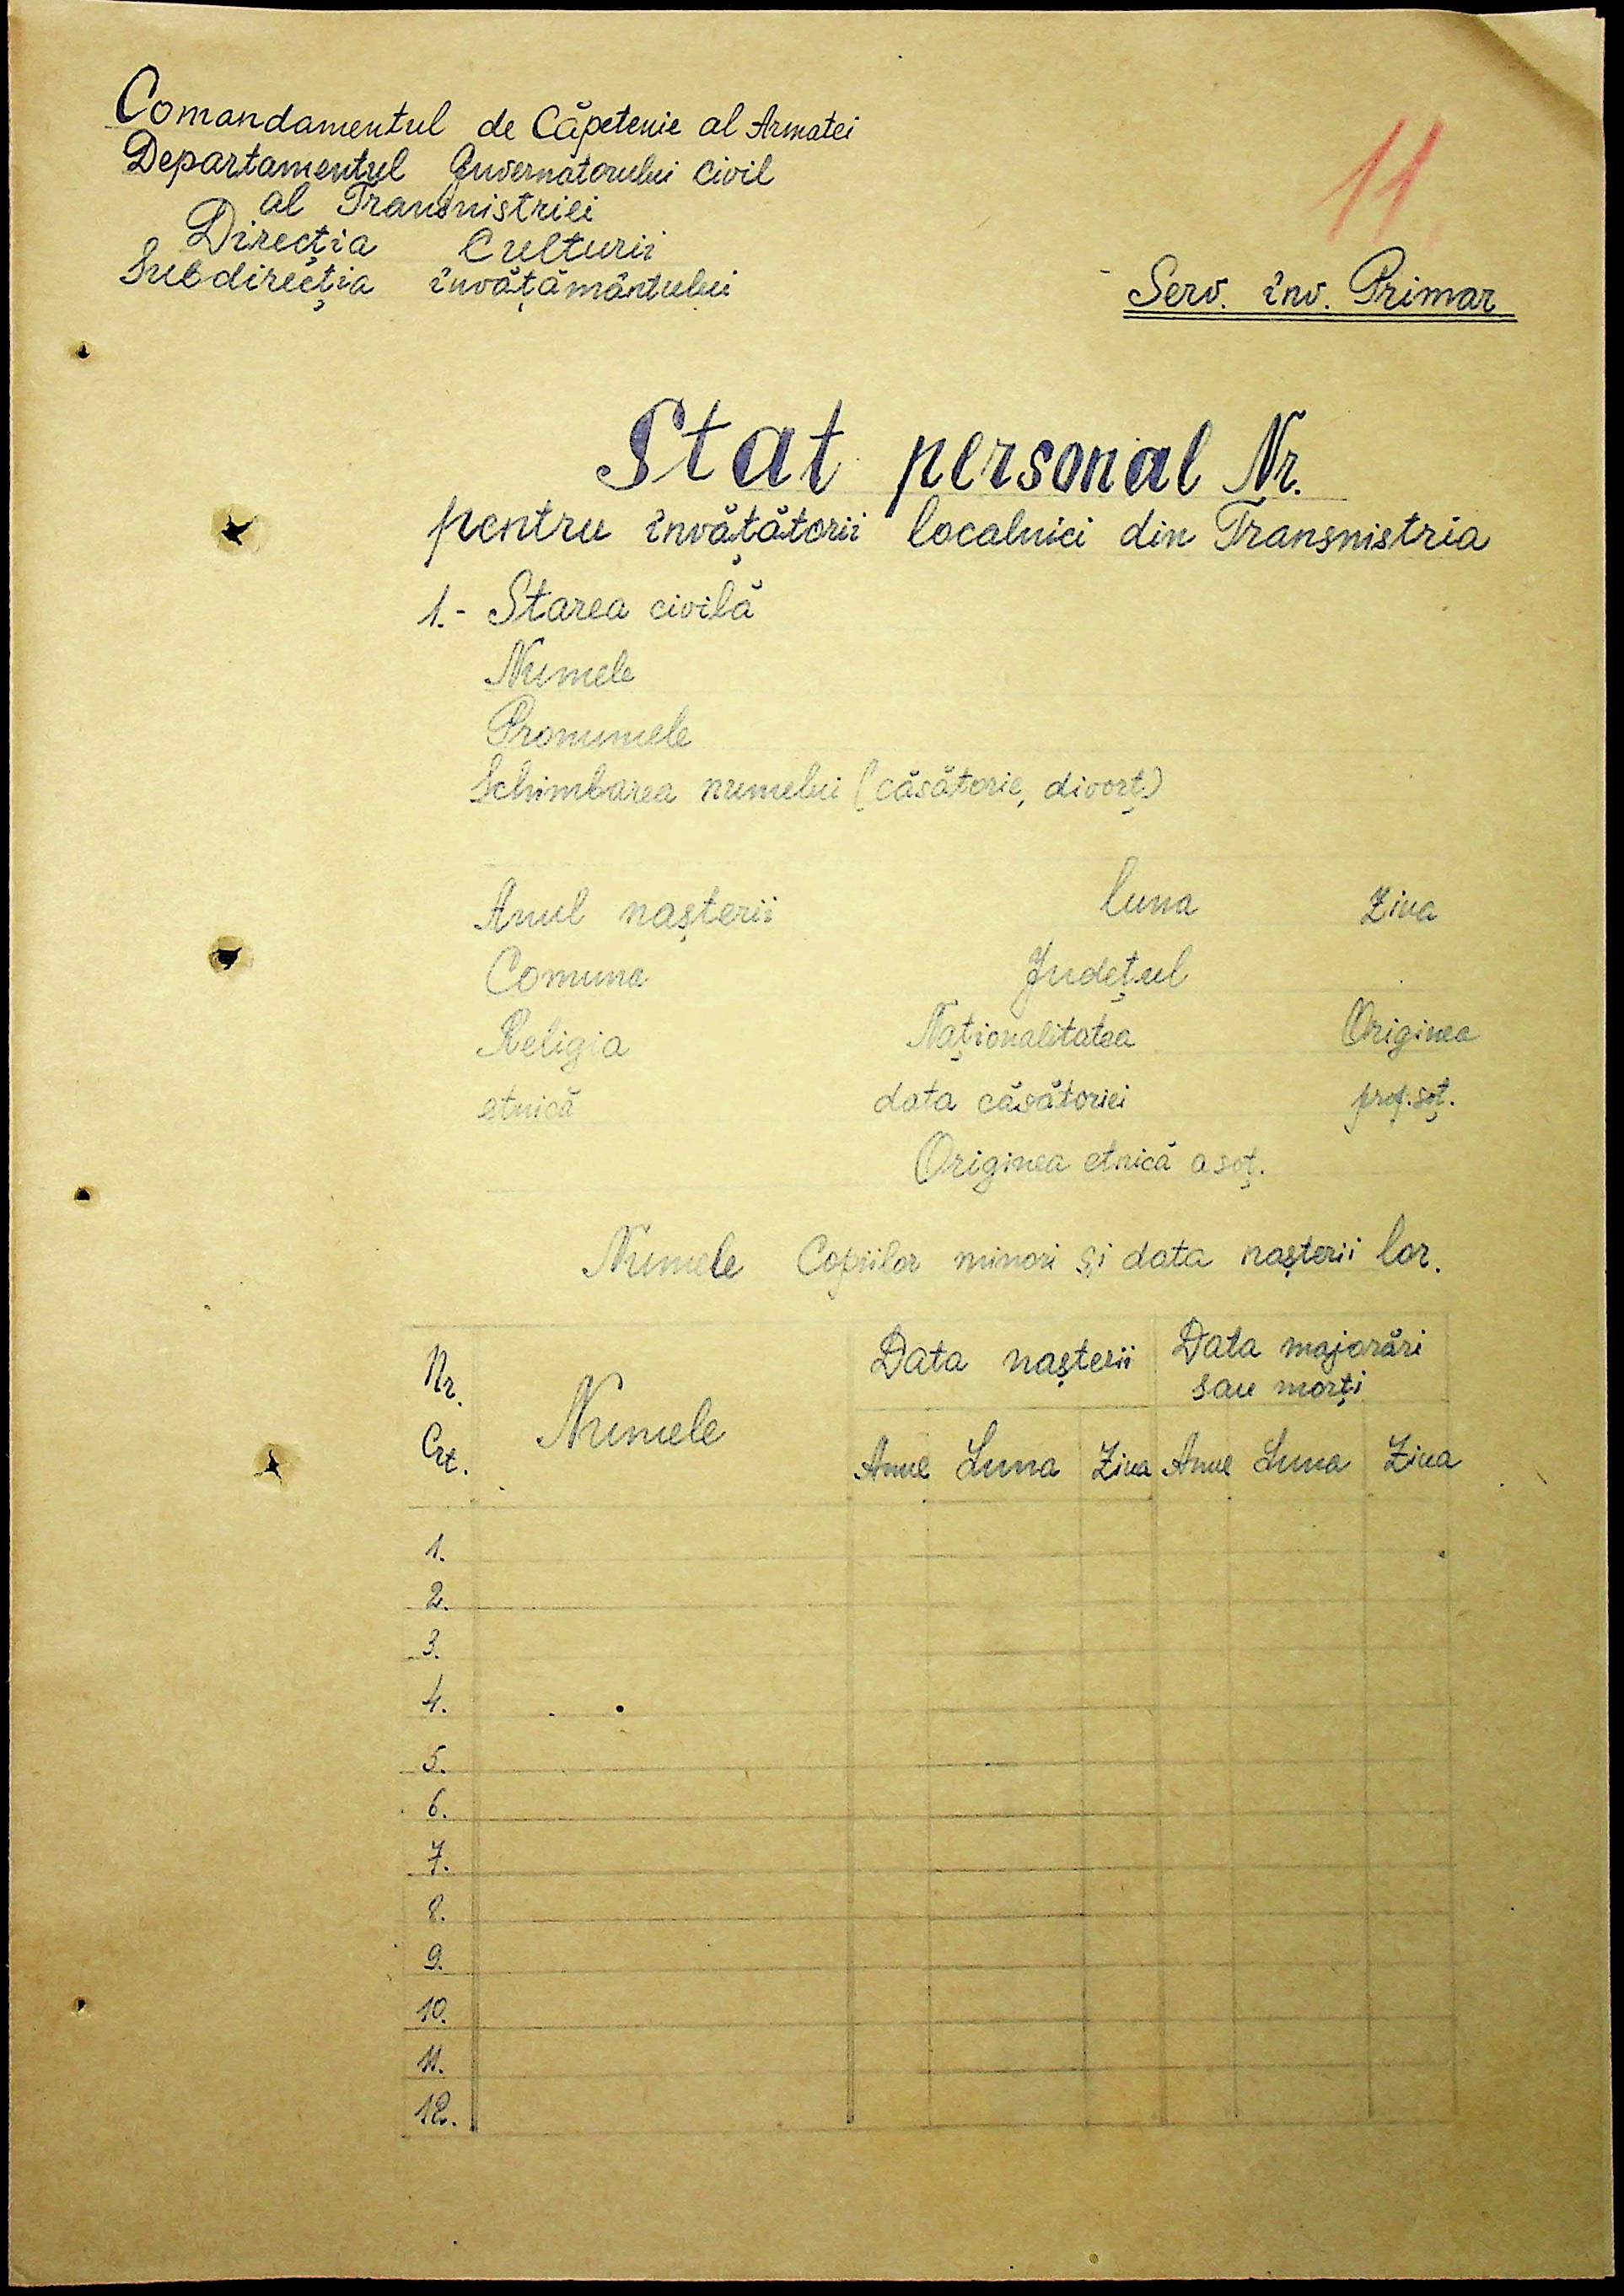 Comandamentul de Căpetenie al Armatei
Departamentul Guvernatorului Civil
al Transnistriei
Direcția Culturii
Subdirecția învățământului
11
Serv. înv. Primar
Stat personal Nr.
pentru învățătorii localnici din Transnistria
1.- Starea civilă
Numele
Pronumele
Schimbarea numelui (căsătorie, divorț)
Anul nașterii luna Ziua
Comuna Județul
Religia Naționalitatea Originea
etnică data căsătoriei prof. soț.
Originea etnică a soț.
Numele Copiilor minori și data nașterii lor.
Nr. Crt. Numele Data nașterii Data majorări
sau morți
Anul Luna Ziua Anul Luna Ziua
1.
2.
3.
4.
5.
6.
7.
8.
9.
10.
11.
12.